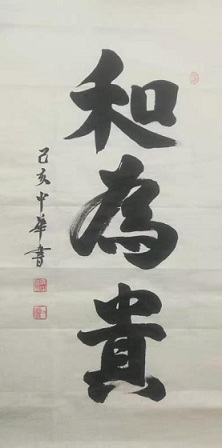 和為貴
己亥中華書